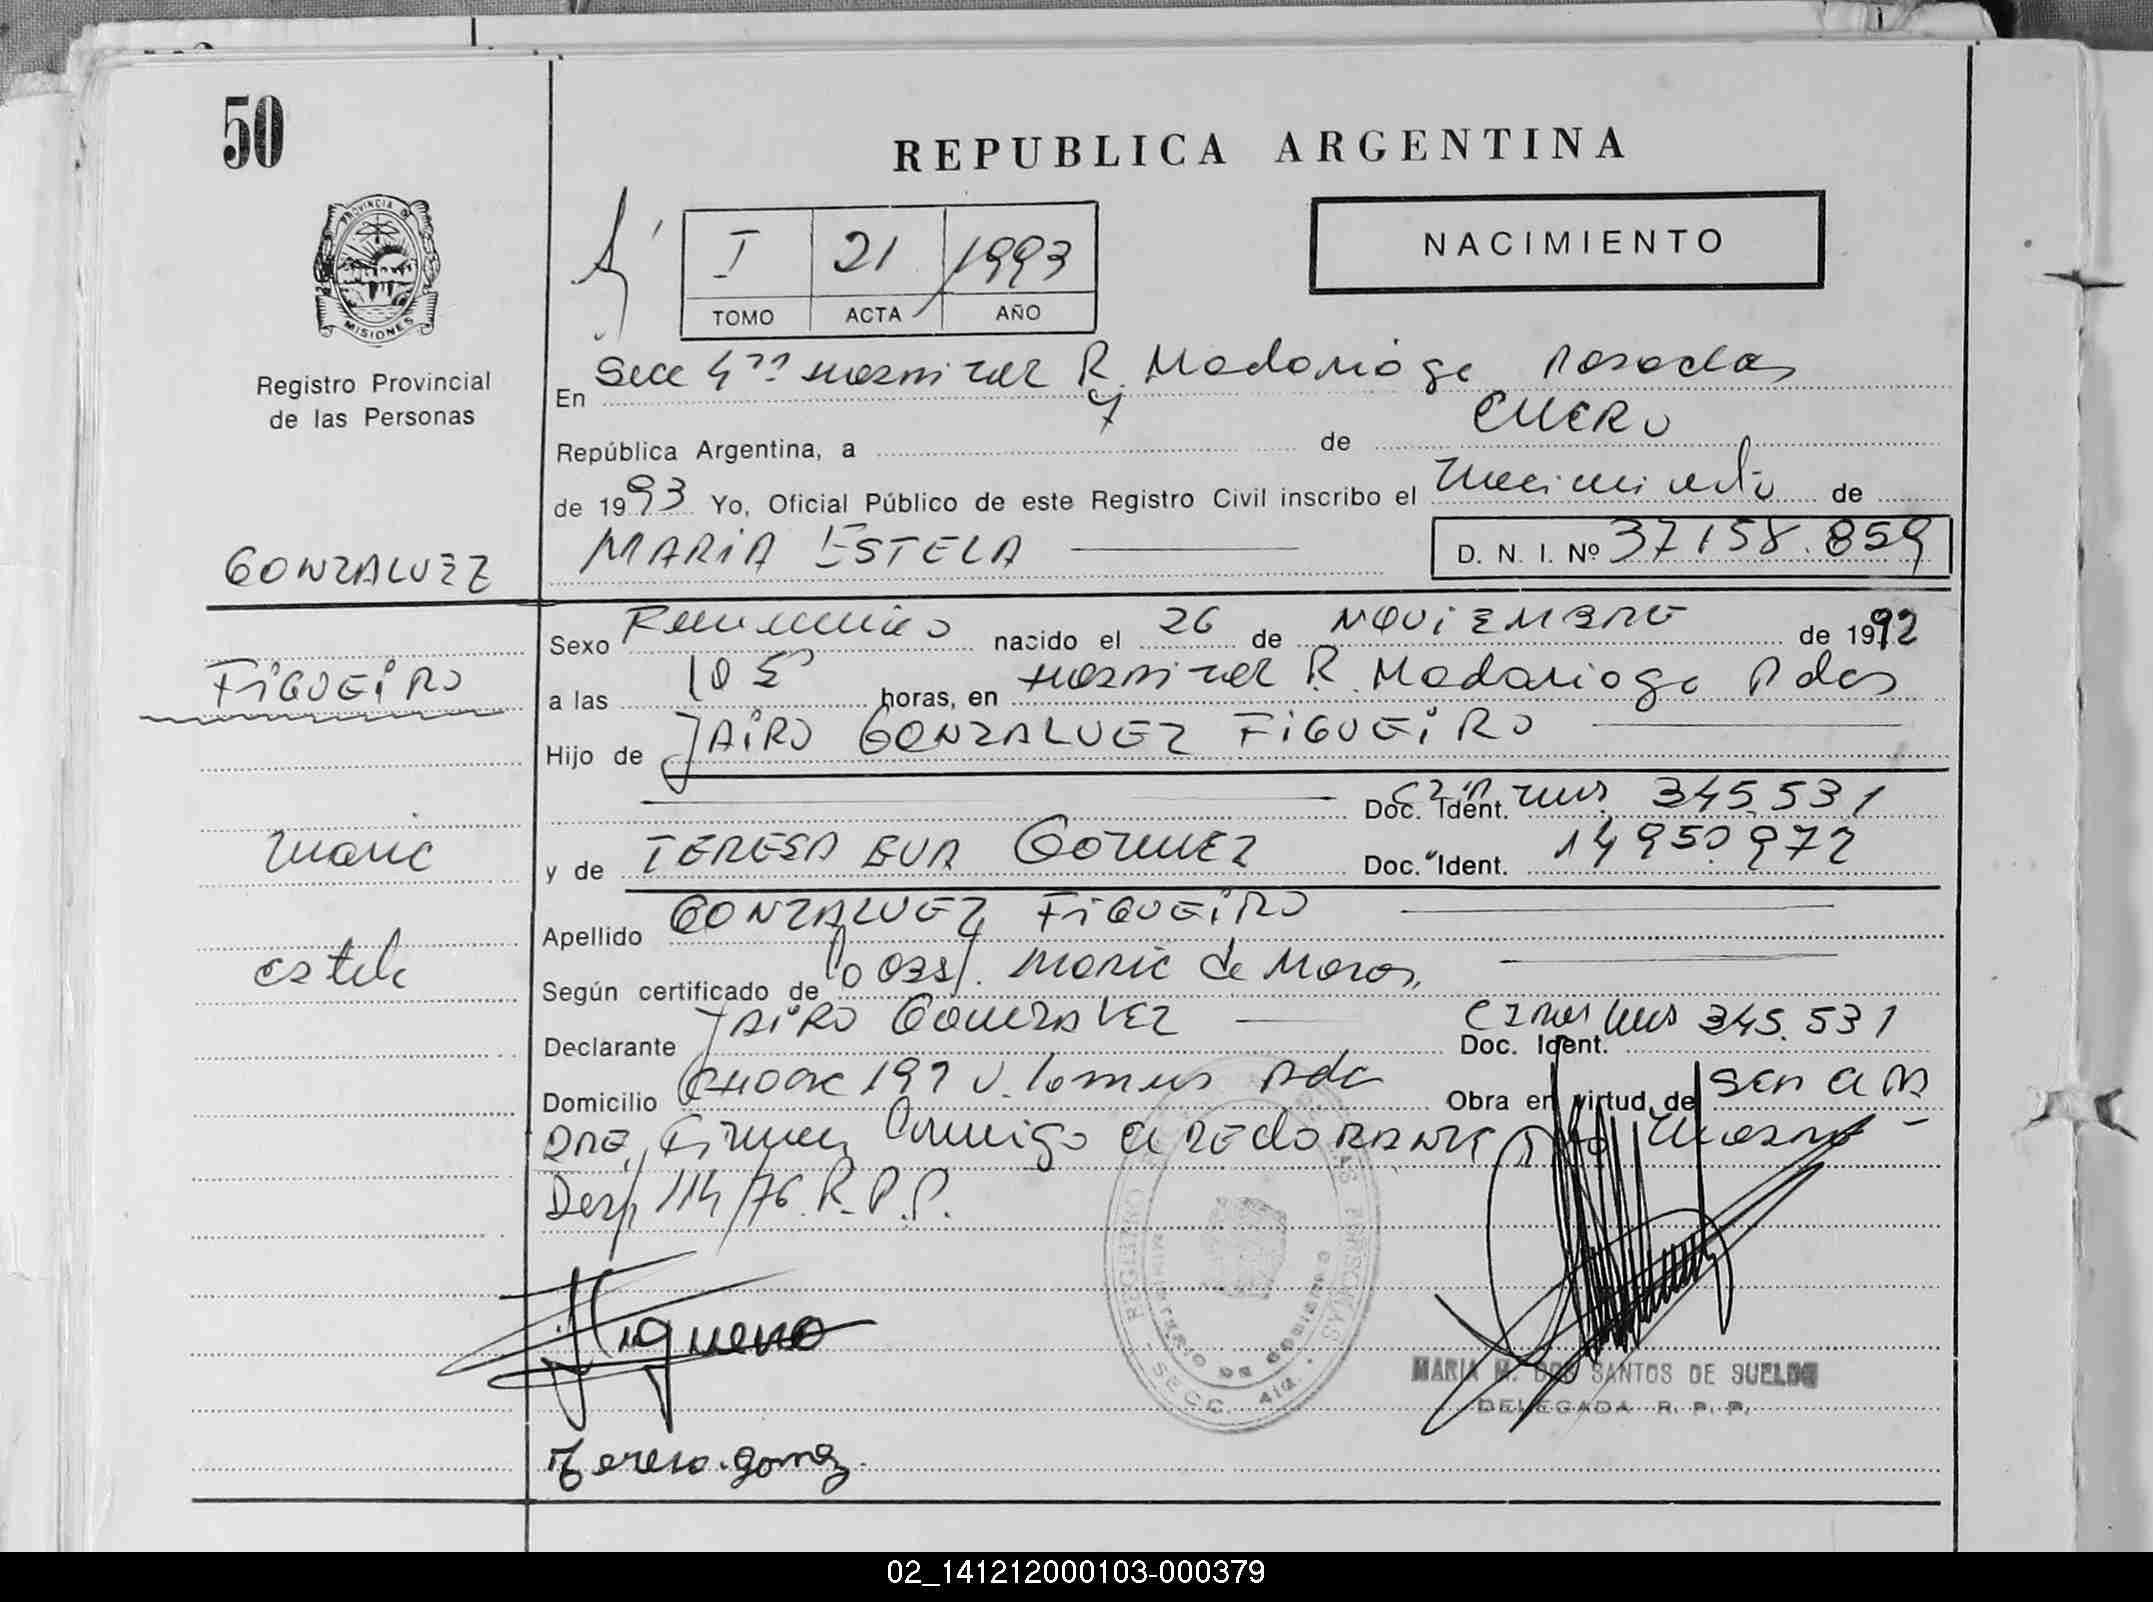 50
REPUBLICA ARGENTINA
NACIMIENTO
I 21 1993
TOMO ACTA AÑO
PROVINCIA DE
MISIONES
Registro Provincial
de las Personas
En Secc 4ta Hospital R. Madariaga Posadas
República Argentina, a 7 de ENERO
de 1993 Yo, Oficial Público de este Registro Civil inscribo el Nacimiento de
MARIA ESTELA D. N. I. Nº 37158.859
GONZALVEZ
FIGUEIRO
Maria
estela
Sexo Femenino nacido el 26 de NOVIEMBRE de 1992
a las 10 5 horas, en Hospital R. Madariaga Pdas
Hijo de JAIRO GONZALVEZ FIGUEIRO
Doc. Ident. 345.531
y de TERESA EVA GOMEZ Doc. Ident. 14950972
Apellido GONZALVEZ FIGUEIRO
Según certificado de la Obst. Maria de Moras,
Declarante JAIRO GONZALVEZ Doc. Ident. Mnes 345.531
Domicilio 199 Pdas Obra en virtud de ser el PA
DRE, Firman Conmigo el
Disp 114/76 R.P.P.
Figueiro
REGISTRO PERSONAS
SECC. 4ta.
MARIA M. DOS SANTOS DE SUELDO
DELEGADA R. P. P.
Teresa gomez.
02_141212000103-000379